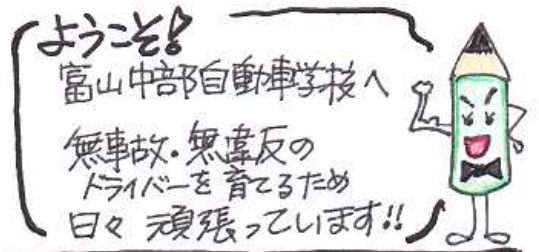 ようこそ!
富山中部自動車学校へ
無事故・無違反の
ドライバーを育てるため
日々 頑張っています!!